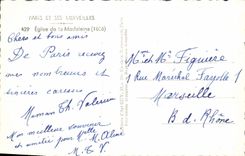 PARIS ET SES MERVEILLES
429 Église de la Madeleine (1806)
Chers et bons amis
De Paris recevez
mes nombreux et
sincères caresses
Maman Th. Valerien
Mon meilleur souvenir
et amitié pour
M. et Mme Figuière
1 Rue Maréchal Fayolle 1
Marseille
B. d. Rhône